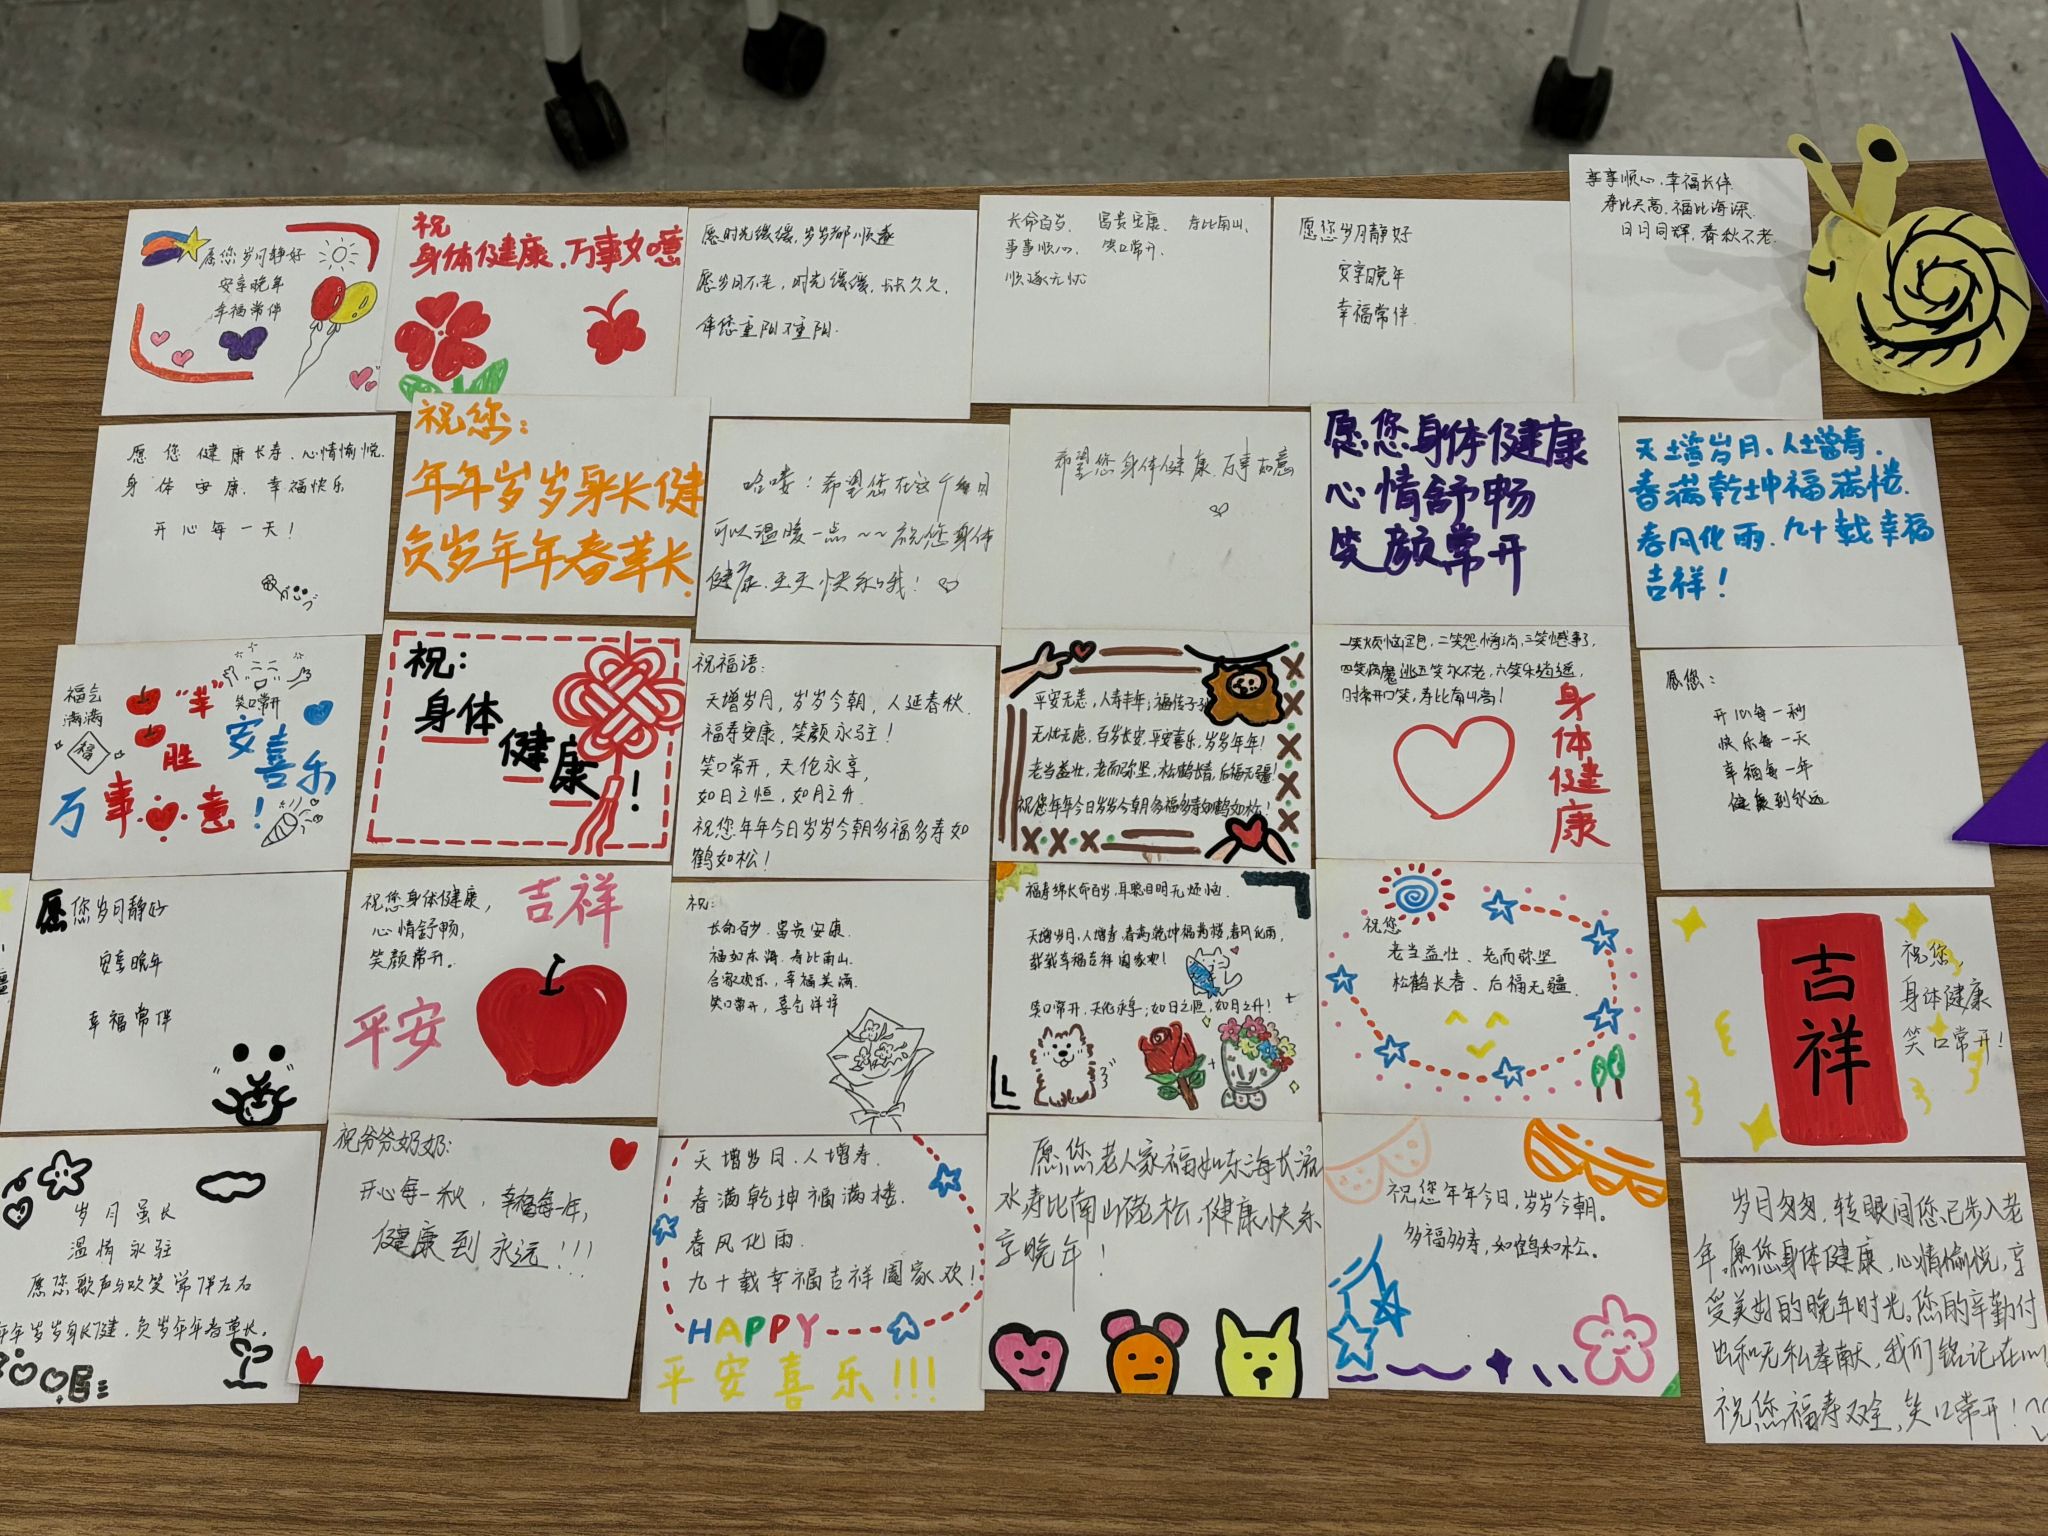 愿您岁月静好
安享晚年
幸福常伴
祝
身体健康,万事如意
愿时光缓缓,岁岁都顺遂
愿岁月不老,时光缓缓,长长久久,
伴您重阳又重阳.
长命百岁、富贵安康、寿比南山、
事事顺心、笑口常开、
顺遂无忧
愿您岁月静好
安享晚年
幸福常伴.
事事顺心,幸福长伴
寿比天高,福比海深.
日月同辉,春秋不老.
愿您健康长寿、心情愉悦.
身体安康、幸福快乐
开心每一天!
祝您:
年年岁岁身长健
负岁年年春草长.
哈喽!希望您在这个每日
可以温暖一点~~祝您身体
健康、天天快乐哦!
希望您身体健康、万事如意
愿您身体健康
心情舒畅
笑颜常开
天增岁月、人增寿.
春满乾坤福满楼.
春风化雨.九十载幸福
吉祥!
福气
满满
"幸"
笑口常开
福
胜
安喜乐
万事 意!
祝:
身体
健康!
祝福语:
天增岁月,岁岁今朝,人延春秋.
福寿安康,笑颜永驻!
笑口常开,天伦永享,
如日之恒,如月之升.
祝您年年今日岁岁今朝多福多寿如
鹤如松!
平安无恙,人寿丰年;福传子
无忧无虑,百岁长安,平安喜乐,岁岁年年!
老当益壮,老而弥坚,松鹤长青,后福无疆!
祝您年年今日岁岁今朝多福多寿如鹤如松!
一笑烦恼跑,二笑怨憎消,三笑憾事了,
四笑病魔逃五笑永不老,六笑乐逍遥,
时常开口笑,寿比南山高!
身体健康
愿您:
开心每一秒
快乐每一天
幸福每一年
健康到永远
愿您岁月静好
安享晚年
幸福常伴
祝您身体健康,
心情舒畅,
笑颜常开.
吉祥
平安
祝:
长命百岁、富贵安康.
福如东海、寿比南山.
合家欢乐,幸福美满.
笑口常开,喜气洋洋
福寿绵长命百岁,耳聪目明无烦恼.
天增岁月,人增寿,春满乾坤福满楼,春风化雨,
载载幸福吉祥阖家欢!
笑口常开,天伦永享;如日之恒,如月之升!
祝您
老当益壮、老而弥坚
松鹤长春、后福无疆.
吉祥
祝您,
身体健康
笑口常开!
岁月虽长
温情永驻
愿您歌声与欢笑常伴左右
年年岁岁身长健,负岁年年春草长.
祝爷爷奶奶:
开心每一秋,幸福每一年,
健康到永远!!!
天增岁月、人增寿.
春满乾坤福满楼.
春风化雨.
九十载幸福吉祥阖家欢!
HAPPY
平安喜乐!!!
愿您老人家福如东海长流
水,寿比南山不老松,健康快乐
享晚年!
祝您年年今日,岁岁今朝。
多福多寿,如鹤如松。
岁月匆匆,转眼间您已步入老
年.愿您身体健康,心情愉悦,享
受美好的晚年时光。您的辛勤付
出和无私奉献,我们铭记在心
祝您福寿双全,笑口常开!